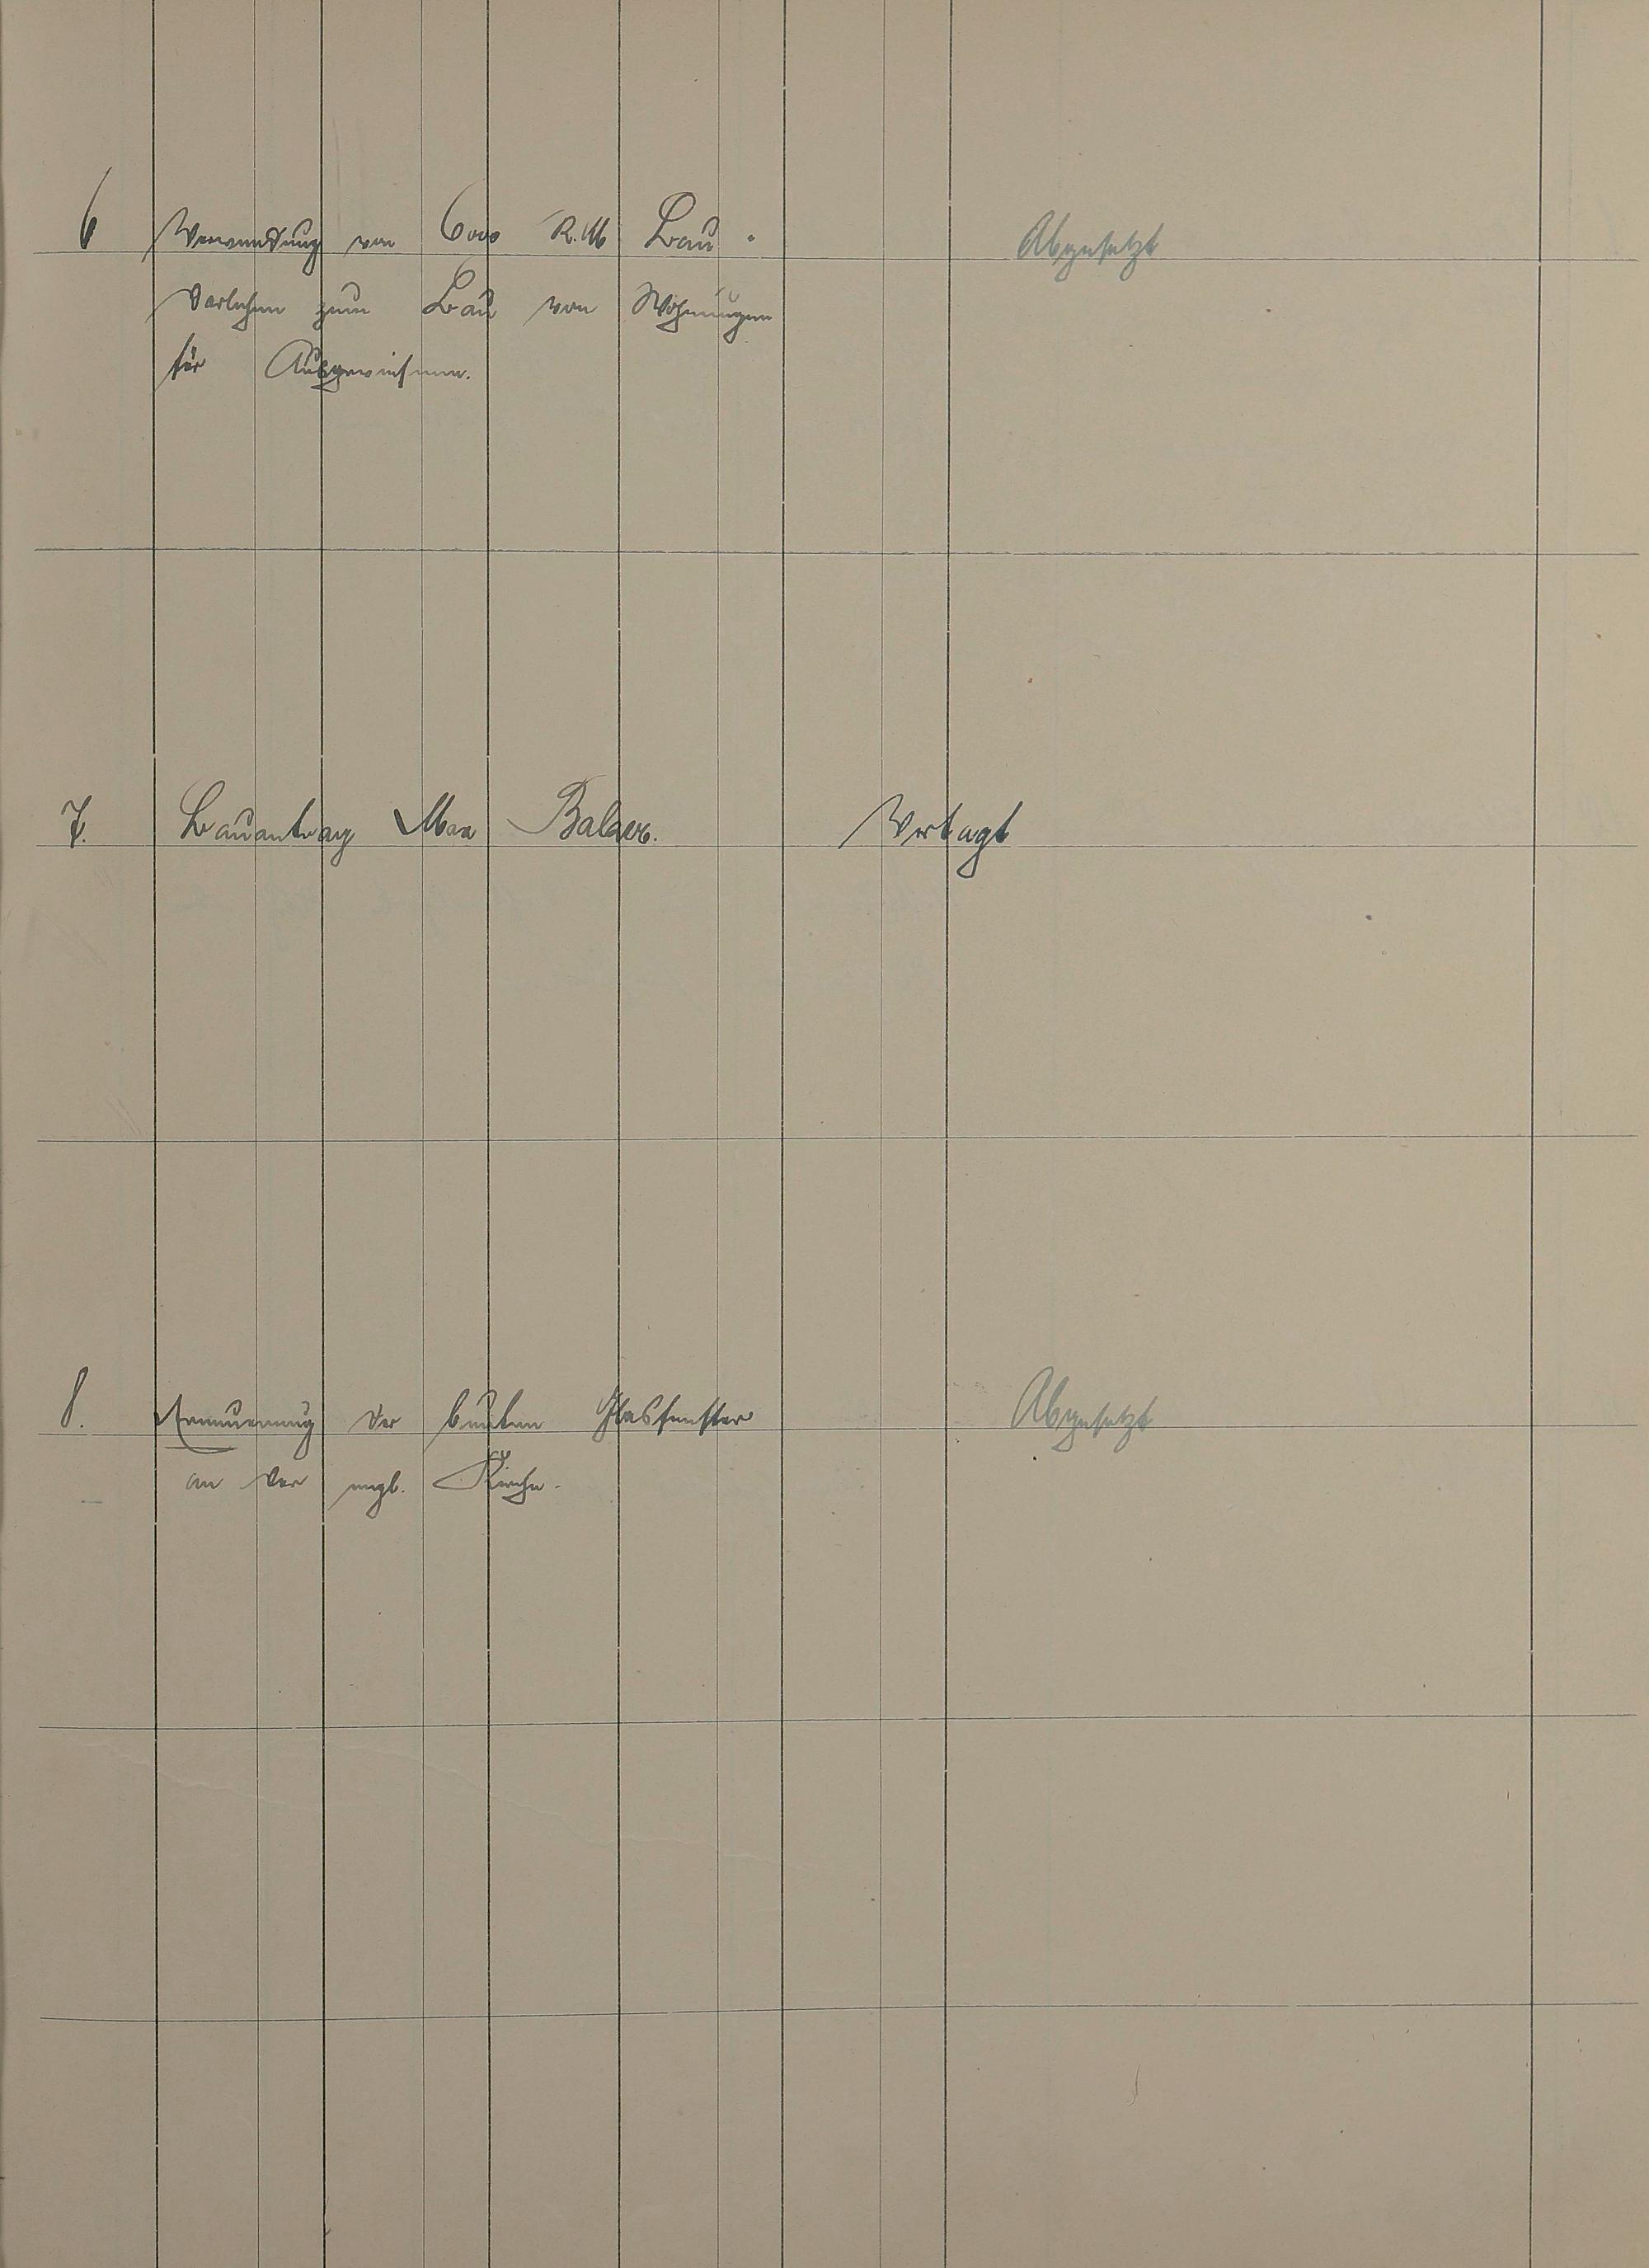 6 Verwendung von 6000 R.M Bau- Abgesetzt
darlehen zum Bau von Wohnungen
für Ausgewiesene.
7. Bauantrag Max Balzer. Vertagt
8. Erneuerung der bunten Glasfenster Abgesetzt
an der evgl. Kirche.